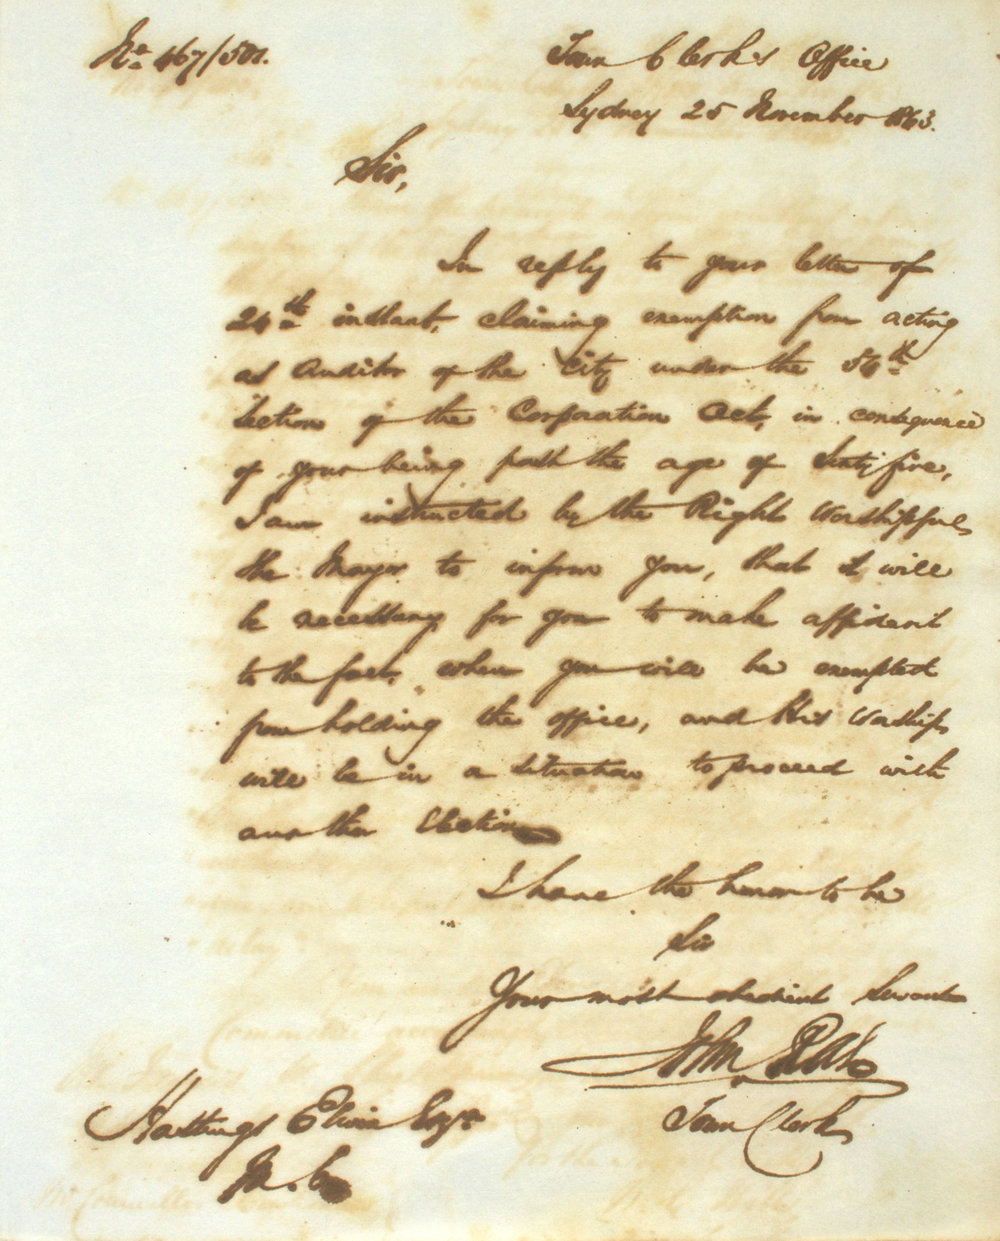 No 467/501.
Town Clerk's Office
Sydney 25 November 1863.
Sir,
In reply to your letter of
24th instant, claiming exemption from acting
as Auditor of the City under the 54th
Section of the Corporation Act, in consequence
of your being past the age of Sixty five,
I am instructed by the Right Worshipful
the Mayor to inform you, that it will
be necessary for you to make affidavit
to the fact, when you will be exempted
from holding the office, and His Worship
will be in a situation to proceed with
another Election
I have the honor to be
Sir
Your most obedient Servant
John
Town Clerk
Hastings Elwin Esqre